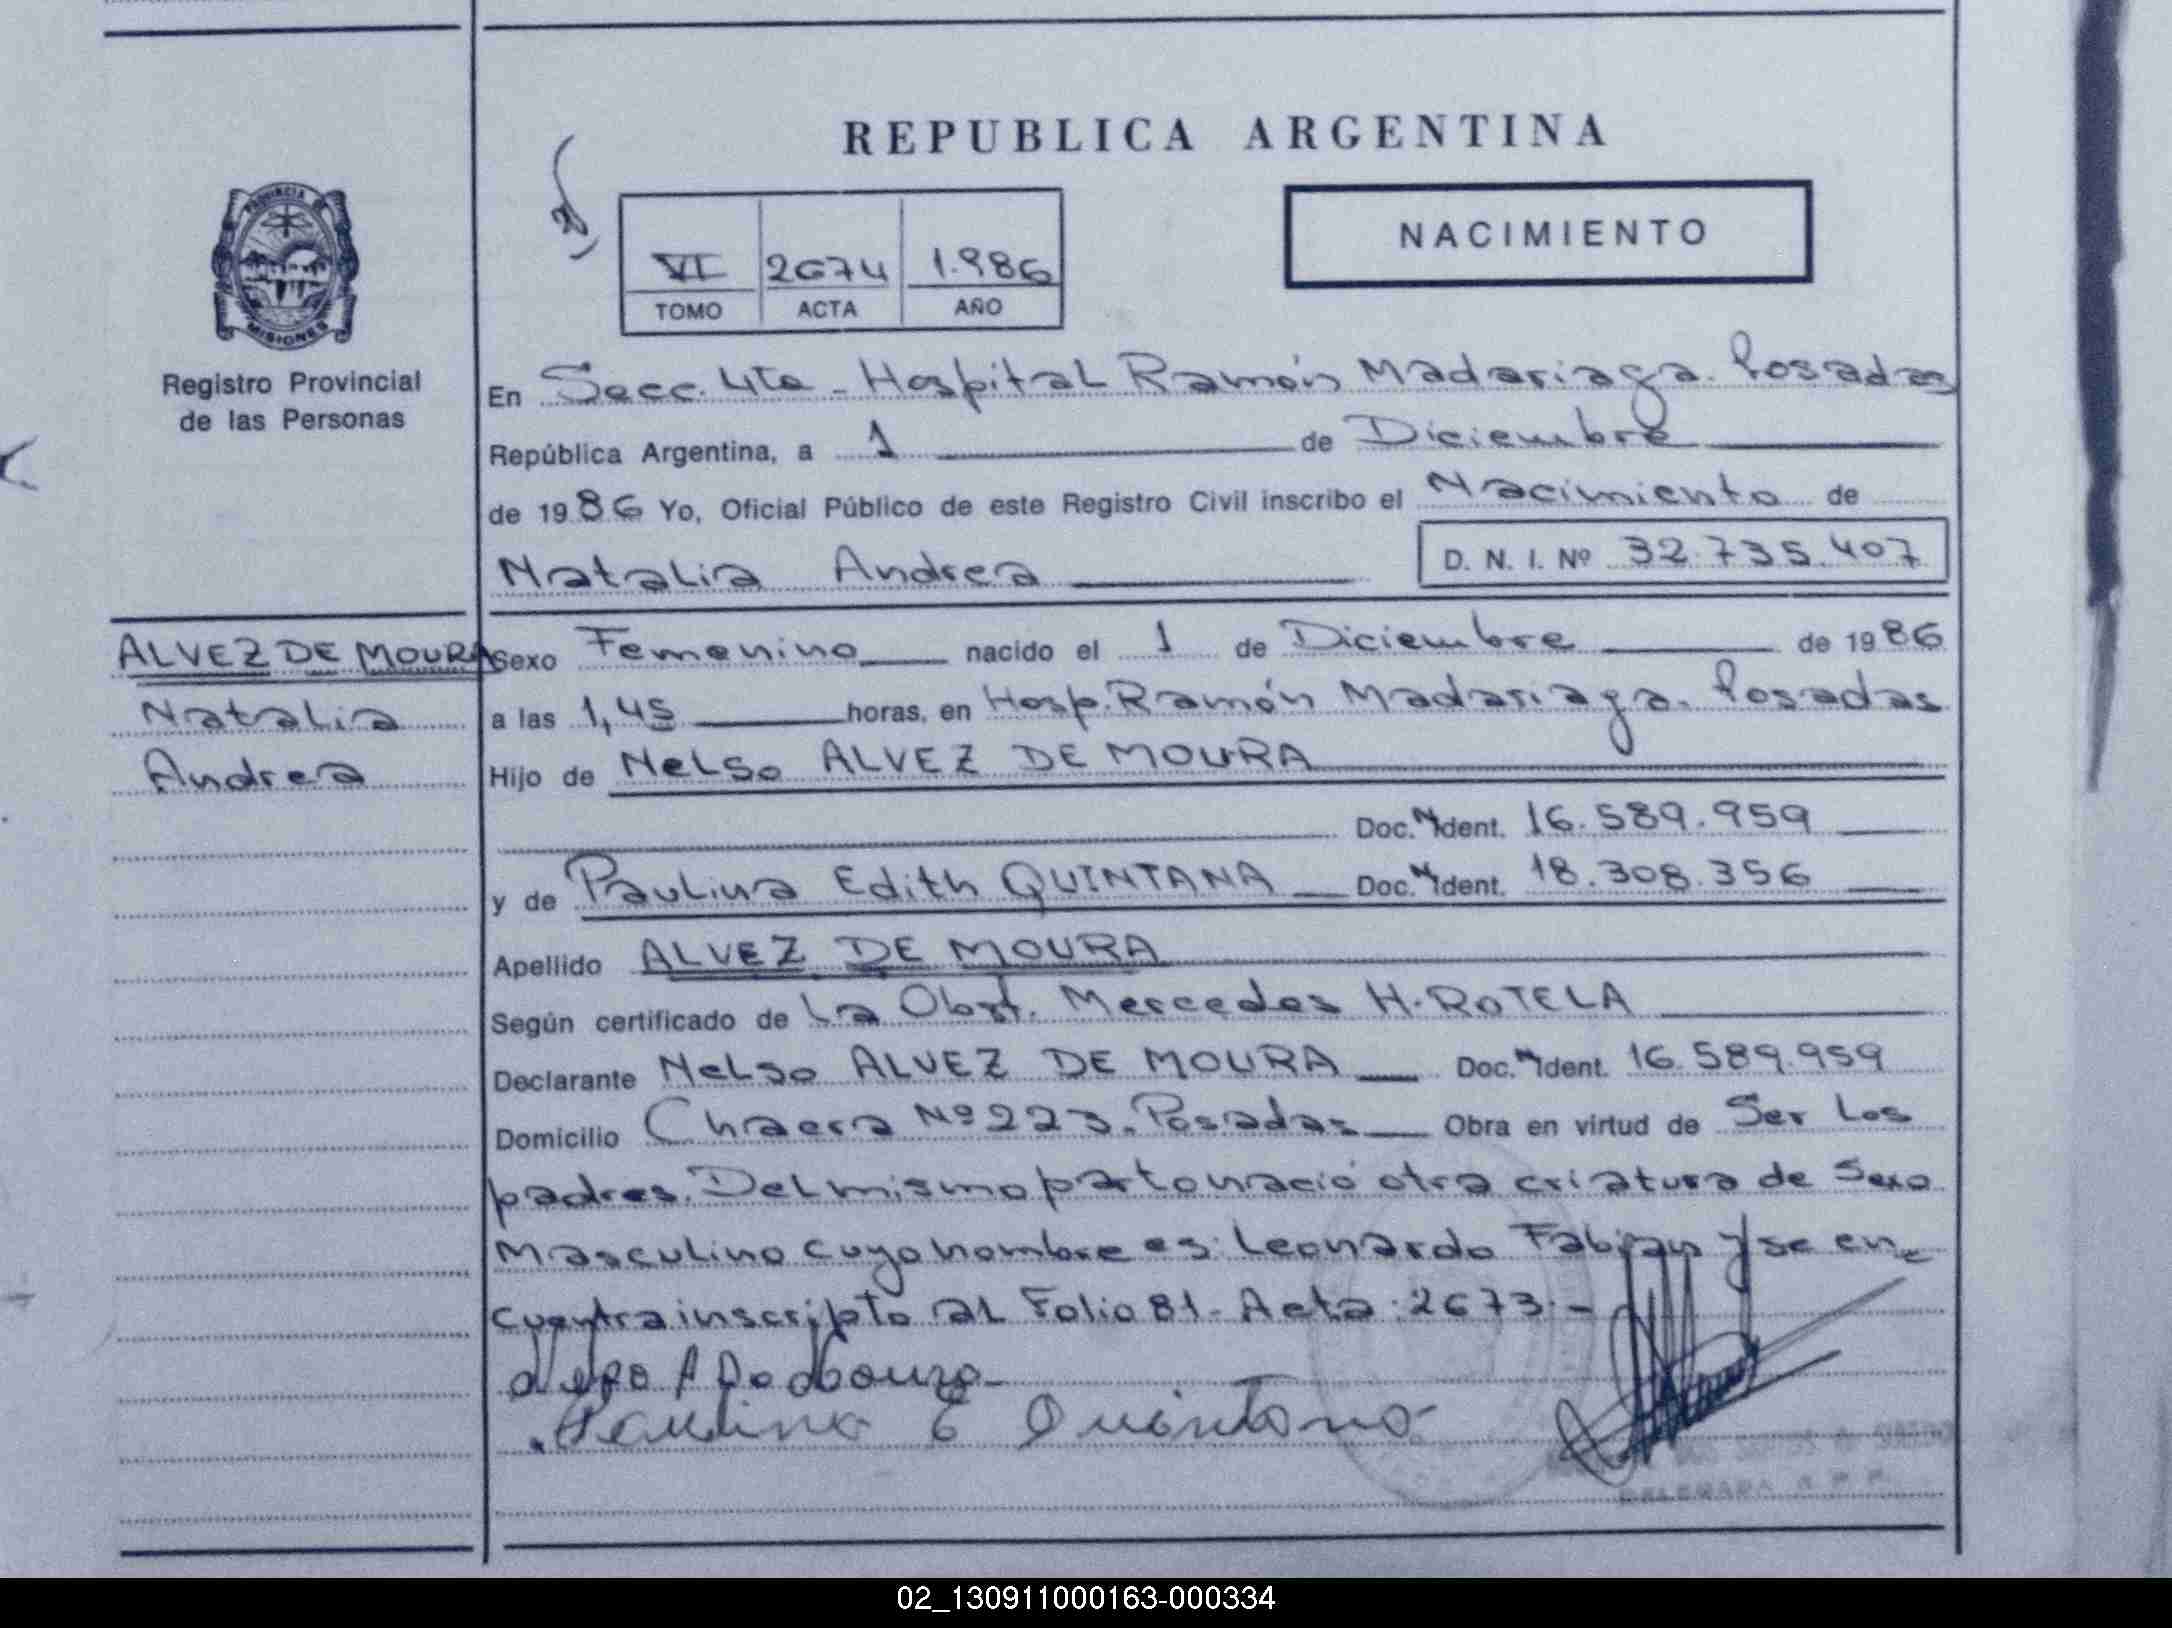 REPUBLICA ARGENTINA
PROVINCIA DE
MISIONES
Registro Provincial
de las Personas
VI 2674 1.986
TOMO ACTA AÑO
NACIMIENTO
En Secc. 4ta - Hospital Ramón Madariaga. Posadas
República Argentina, a 1 de Diciembre
de 1986 Yo, Oficial Público de este Registro Civil inscribo el Nacimiento de
Natalia Andrea D. N. I. Nº 32.735.407
ALVEZ DE MOURA
Natalia
Andrea
Sexo Femenino nacido el 1 de Diciembre de 1986
a las 1,45 horas, en Hosp. Ramón Madariaga. Posadas
Hijo de Nelso ALVEZ DE MOURA
Doc. N Ident. 16.589.959
y de Paulina Edith QUINTANA Doc. N Ident. 18.308.356
Apellido ALVEZ DE MOURA
Según certificado de La Obst. Mercedes H. ROTELA
Declarante Nelso ALVEZ DE MOURA Doc. N Ident. 16.589.959
Domicilio Chacra Nº 223. Posadas Obra en virtud de Ser Los
padres. Del mismo parto nació otra criatura de Sexo
Masculino cuyo nombre es: Leonardo Fabian y se en
cuentra inscripto al Folio 81 - Acta: 2673 -
Paulina E Quintana
DELEGADA R.P.P.
02_130911000163-000334